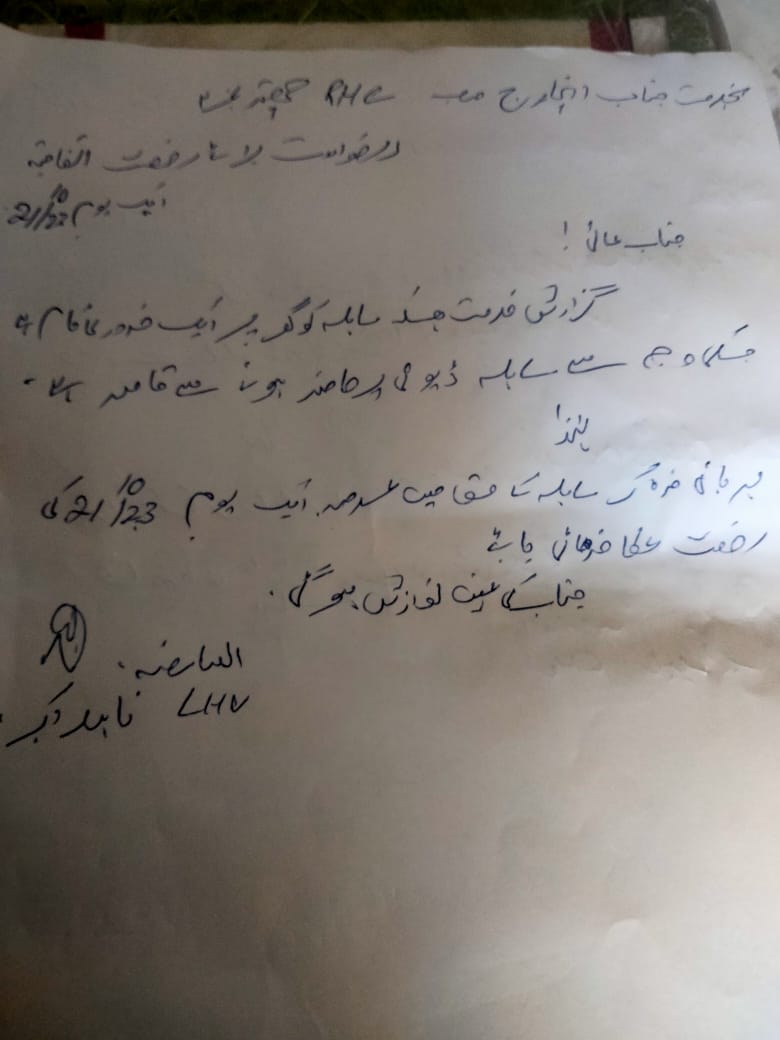 بخدمت جناب انچارج صاحب RHC
درخواست برائے رخصت اتفاقیہ
ایک یوم 21/10/23
جناب عالی!
گزارش خدمت ہیکہ سائلہ کو گھر پر ایک ضروری کام ہے
جسکی وجہ سے سائلہ ڈیوٹی پر حاضر ہونے سے قاصر ہے۔
لہٰذا
مہربانی فرما کر سائلہ کے حق میں عرصہ ایک یوم 21/10/23 کی
رخصت عطا فرمائی جائے
جناب کی عین نوازش ہوگی۔
العارضہ
LHV ناہید